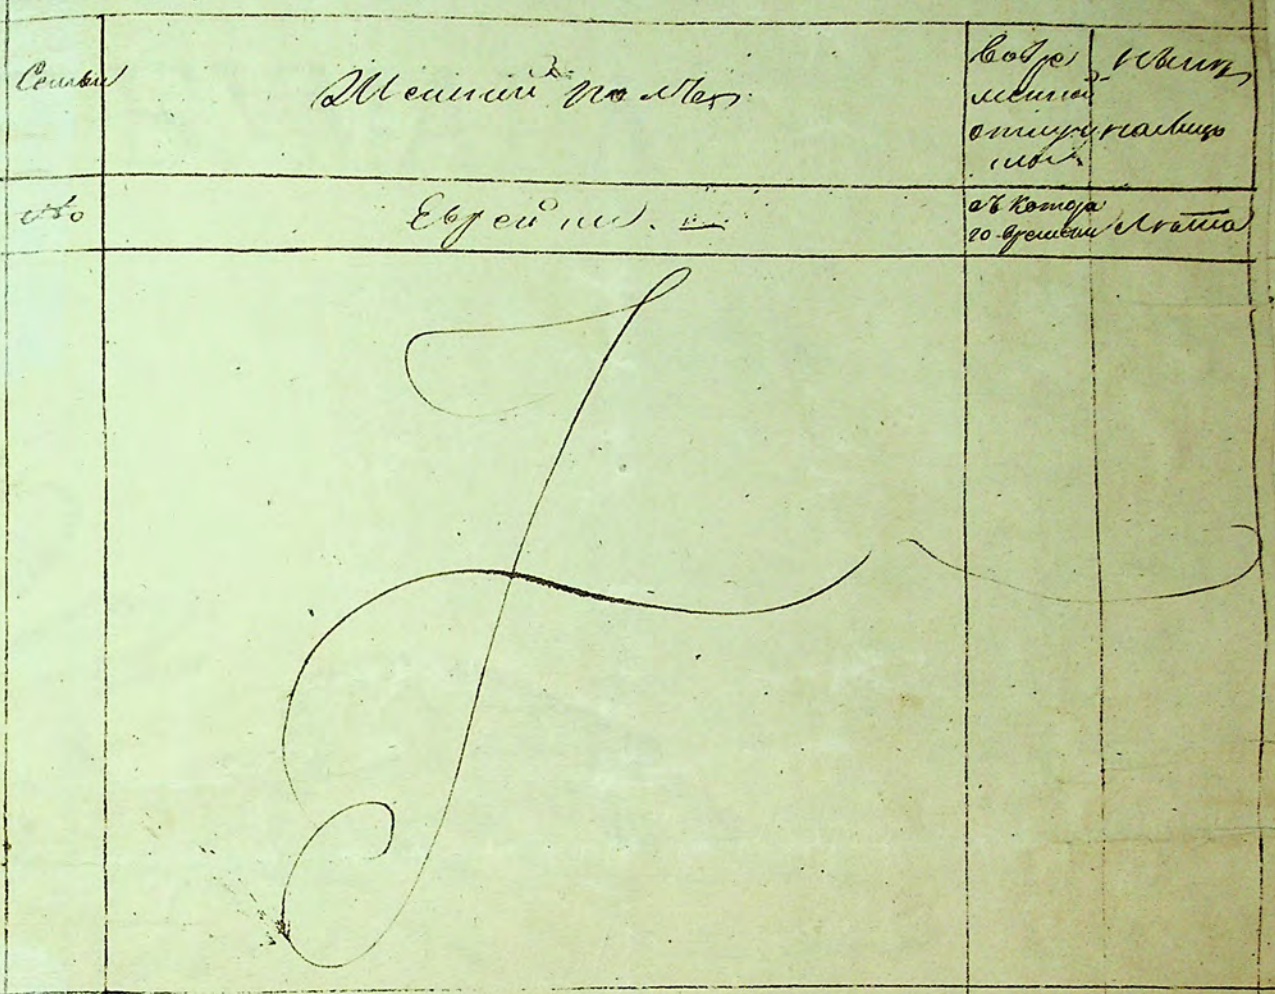 Семьи
Женскій полъ
Во вре
менной
отлуч
нынѣ
налицо
№
Еврейки.
съ котора
го времени
Лѣта